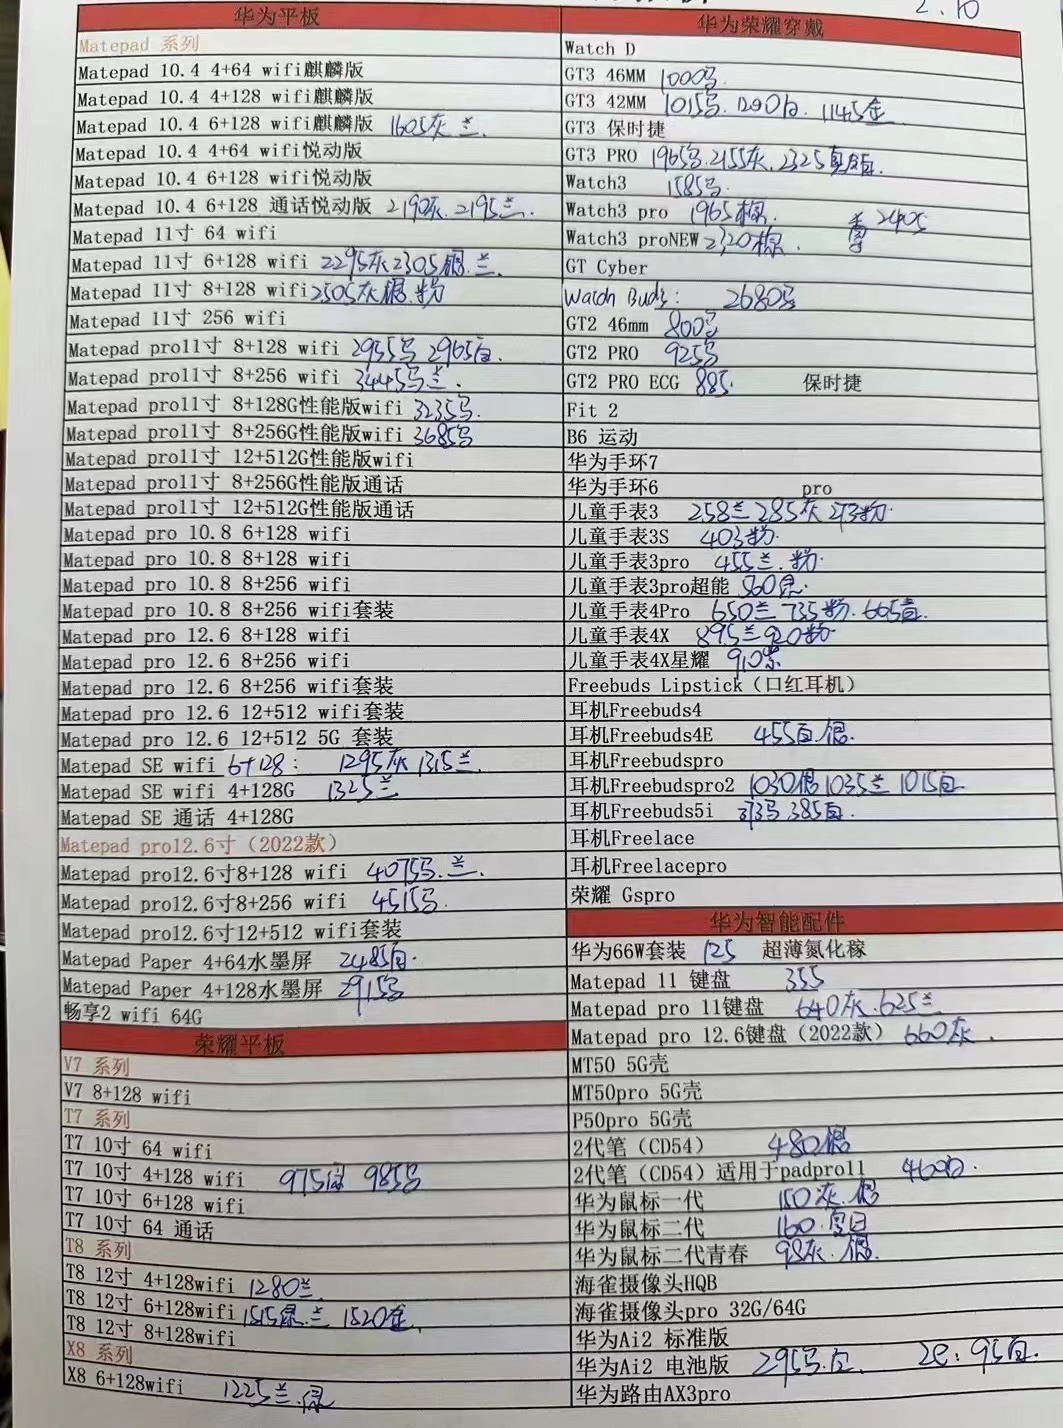 2.10
华为平板
Matepad 系列
Matepad 10.4 4+64 wifi麒麟版
Matepad 10.4 4+128 wifi麒麟版
Matepad 10.4 6+128 wifi麒麟版 1605灰 兰.
Matepad 10.4 4+64 wifi悦动版
Matepad 10.4 6+128 wifi悦动版
Matepad 10.4 6+128 通话悦动版 2190灰. 2195兰.
Matepad 11寸 64 wifi
Matepad 11寸 6+128 wifi 2295灰2305银.兰.
Matepad 11寸 8+128 wifi 2505灰银.粉
Matepad 11寸 256 wifi
Matepad pro11寸 8+128 wifi 2935黑 2965白.
Matepad pro11寸 8+256 wifi 3445黑兰.
Matepad pro11寸 8+128G性能版wifi 3235黑.
Matepad pro11寸 8+256G性能版wifi 3685黑
Matepad pro11寸 12+512G性能版wifi
Matepad pro11寸 8+256G性能版通话
Matepad pro11寸 12+512G性能版通话
Matepad pro 10.8 6+128 wifi
Matepad pro 10.8 8+128 wifi
Matepad pro 10.8 8+256 wifi
Matepad pro 10.8 8+256 wifi套装
Matepad pro 12.6 8+128 wifi
Matepad pro 12.6 8+256 wifi
Matepad pro 12.6 8+256 wifi套装
Matepad pro 12.6 12+512 wifi套装
Matepad pro 12.6 12+512 5G 套装
Matepad SE wifi 6+128: 1295灰 1315兰.
Matepad SE wifi 4+128G 1325兰
Matepad SE 通话 4+128G
Matepad pro12.6寸（2022款）
Matepad pro12.6寸8+128 wifi 4075黑.兰.
Matepad pro12.6寸8+256 wifi 4515黑.
Matepad pro12.6寸12+512 wifi套装
Matepad Paper 4+64水墨屏 2485白.
Matepad Paper 4+128水墨屏 2915黑
畅享2 wifi 64G
荣耀平板
V7 系列
V7 8+128 wifi
T7 系列
T7 10寸 64 wifi
T7 10寸 4+128 wifi 975 985黑
T7 10寸 6+128 wifi
T7 10寸 64 通话
T8 系列
T8 12寸 4+128wifi 1280兰.
T8 12寸 6+128wifi 1515绿.兰 1520金.
T8 12寸 8+128wifi
X8 系列
X8 6+128wifi 1225兰.绿
华为荣耀穿戴
Watch D
GT3 46MM 1000黑.
GT3 42MM 1015黑. 1200白. 1145金.
GT3 保时捷
GT3 PRO 1965黑.2155灰.2325真皮.
Watch3 1585黑.
Watch3 pro 1965棕.
Watch3 proNEW 2320棕. 2405
GT Cyber
Watch Buds: 2680黑
GT2 46mm 800黑
GT2 PRO 925黑
GT2 PRO ECG 885. 保时捷
Fit 2
B6 运动
华为手环7
华为手环6 pro
儿童手表3 258兰 285灰 273粉.
儿童手表3S 403粉.
儿童手表3pro 455兰.粉.
儿童手表3pro超能 560.
儿童手表4Pro 650兰 735粉. 665.
儿童手表4X 895兰920粉.
儿童手表4X星耀 910紫
Freebuds Lipstick（口红耳机）
耳机Freebuds4
耳机Freebuds4E 455白.银.
耳机Freebudspro
耳机Freebudspro2 1030银 1035兰 1015白
耳机Freebuds5i 373黑 385白.
耳机Freelace
耳机Freelacepro
荣耀 Gspro
华为智能配件
华为66W套装 125 超薄氮化稼
Matepad 11 键盘 355
Matepad pro 11键盘 640灰.625兰
Matepad pro 12.6键盘（2022款） 660灰.
MT50 5G壳
MT50pro 5G壳
P50pro 5G壳
2代笔（CD54） 480银
2代笔（CD54）适用于padpro11 460白.
华为鼠标一代 150灰.银
华为鼠标二代 160.
华为鼠标二代青春 98灰.银.
海雀摄像头HQB
海雀摄像头pro 32G/64G
华为Ai2 标准版
华为Ai2 电池版 295黑.白. 2e: 95白.
华为路由AX3pro